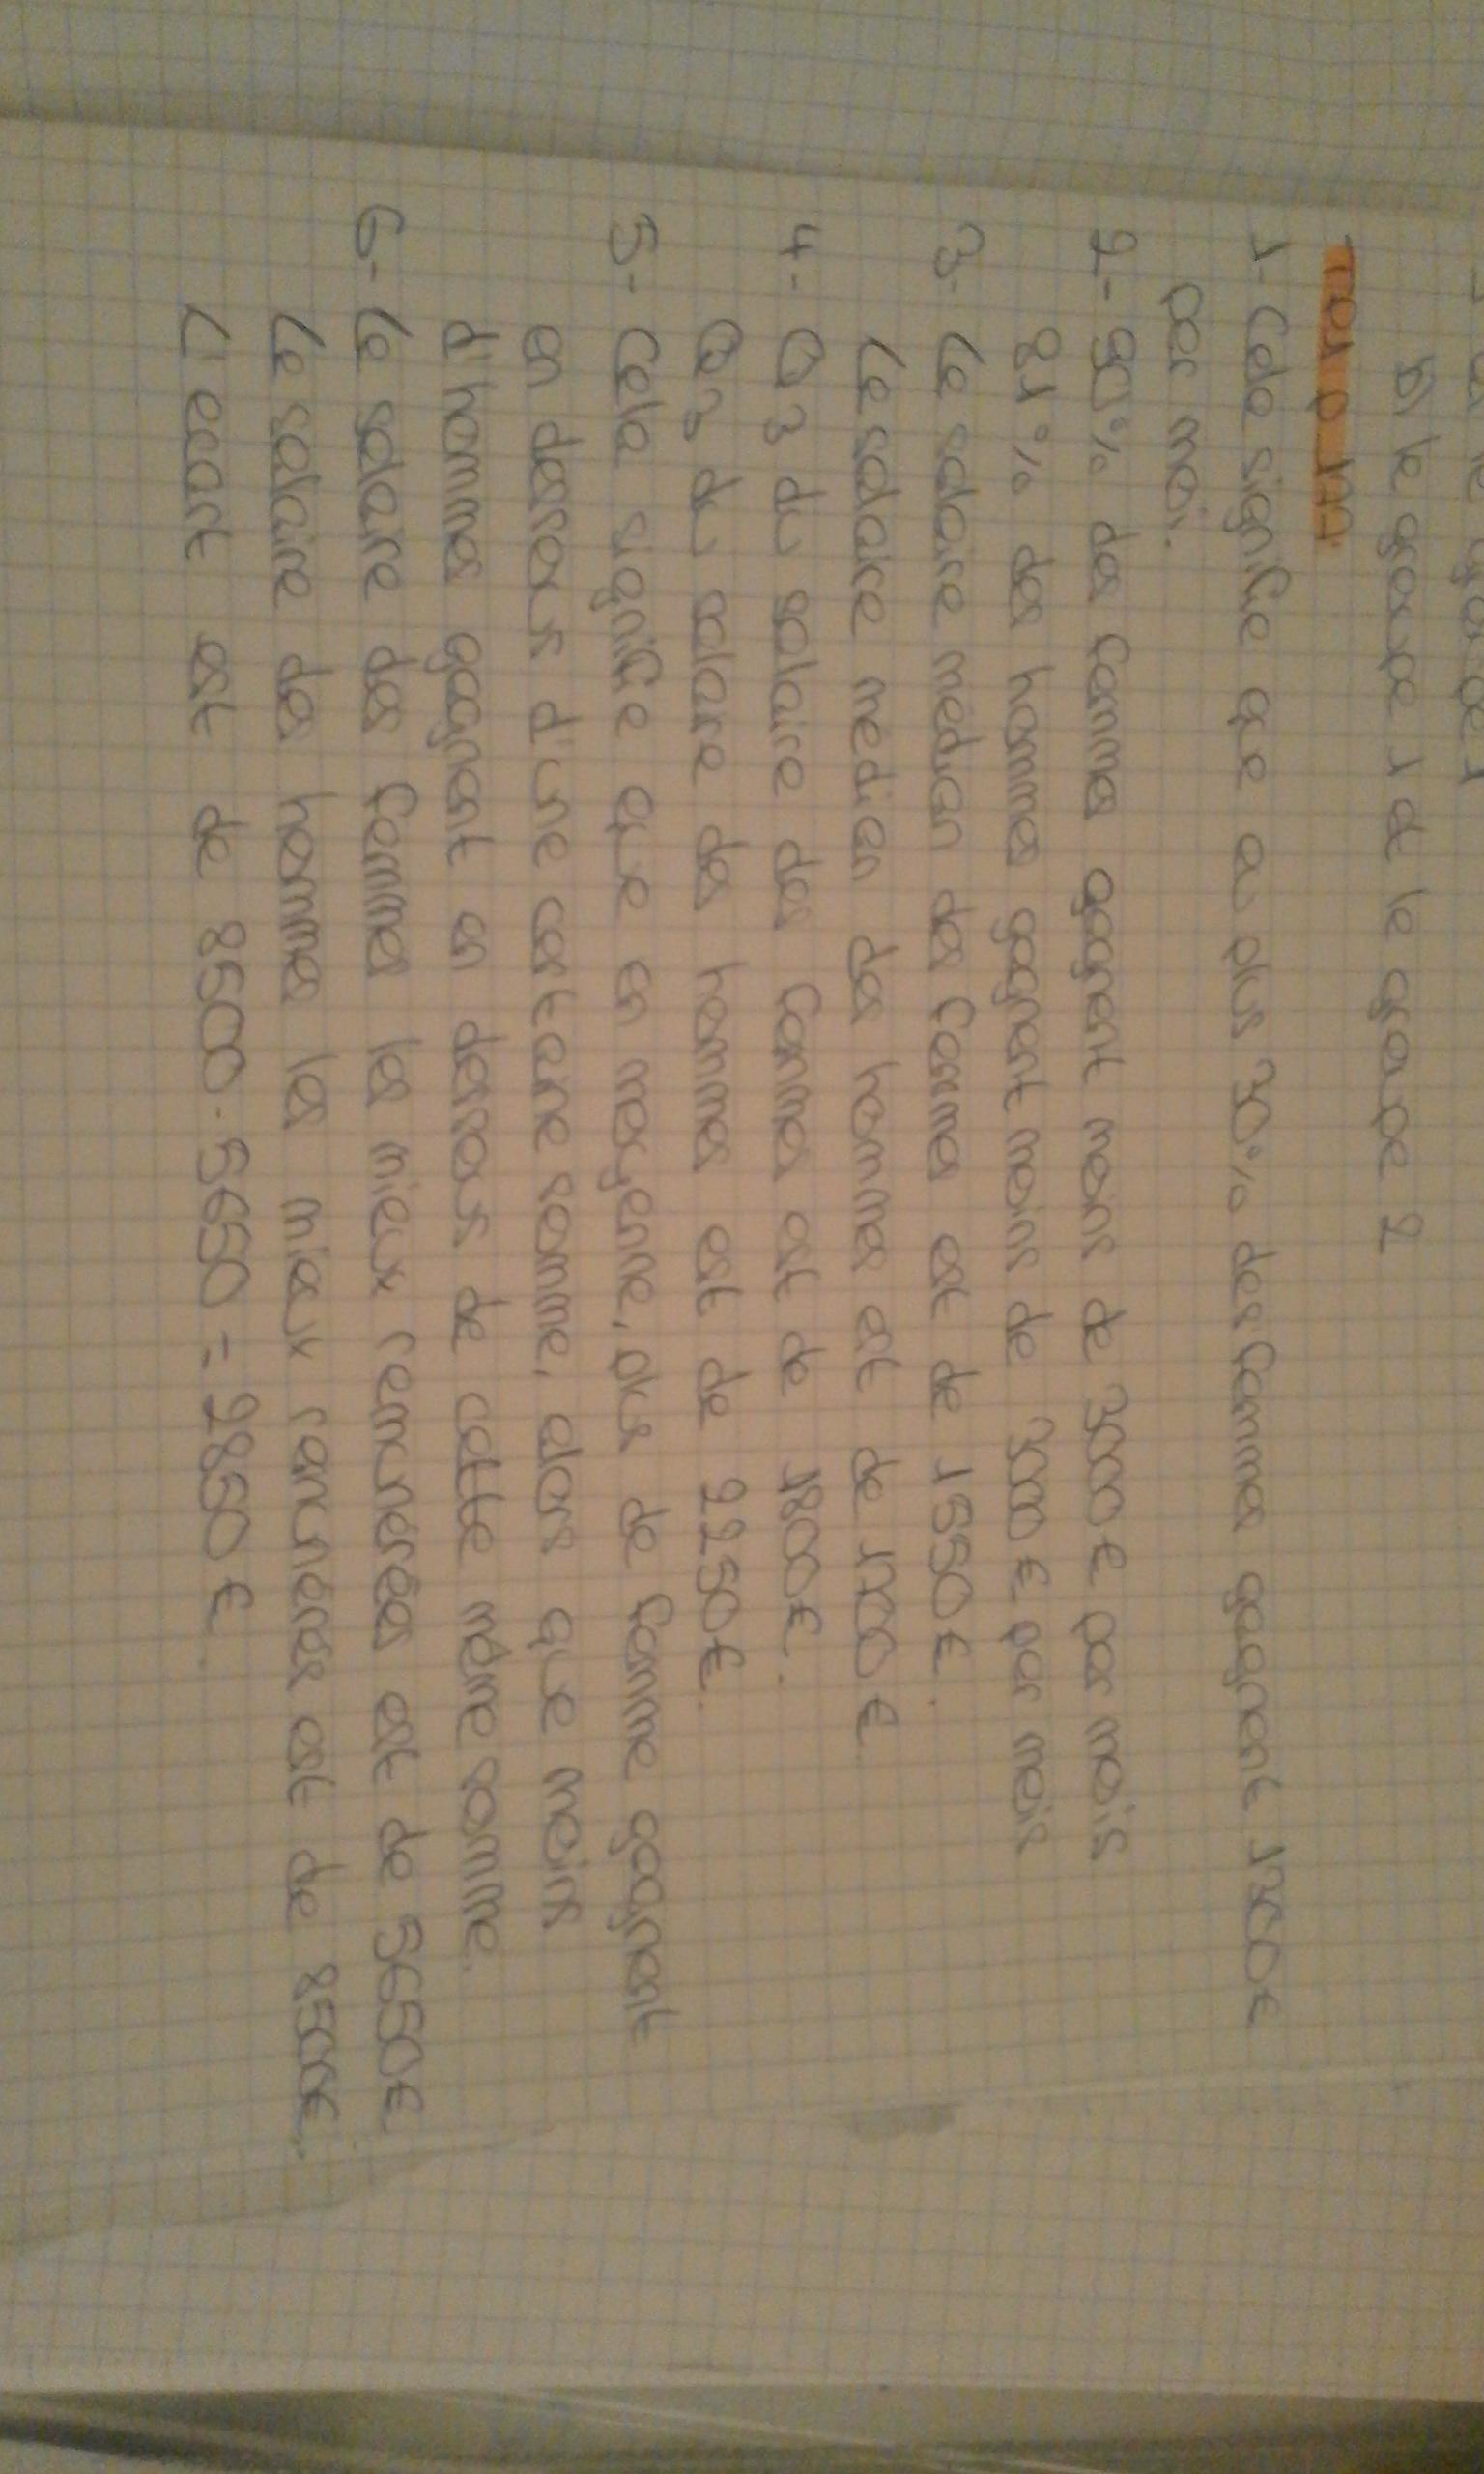 b) le groupe 1 et le groupe 2
p 177.
1- Cela signifie que au plus 30% des femmes gagnent 1300 €
par moi.
2- 90% des femmes gagnent moins de 3000 € par mois
81% des hommes gagnent moins de 3000 € par mois
3- Le salaire médian des femmes est de 1550 €.
Le salaire médian des hommes est de 1700 €.
4- Q3 du salaire des femmes est de 1800 €.
Q3 du salaire des hommes est de 2250 €.
5- Cela signifie que en moyenne, plus de femme gagnent
en dessous d'une certaine somme, alors que moins
d'hommes gagnent en dessous de cette même somme.
6- Le salaire des femmes les mieux remunérées est de 5650 €
Le salaire des hommes les mieux remunérés est de 8500 €.
L'écart est de 8500 - 5650 = 2850 €.